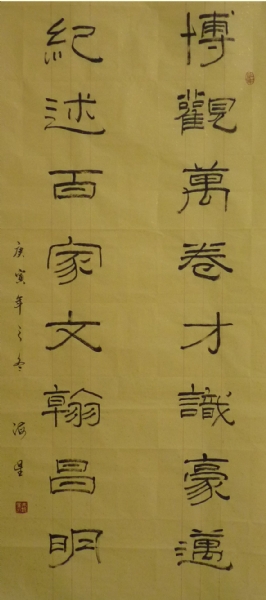 博觀萬卷才識豪邁
紀述百家文翰昌明
庚寅年之冬 海星